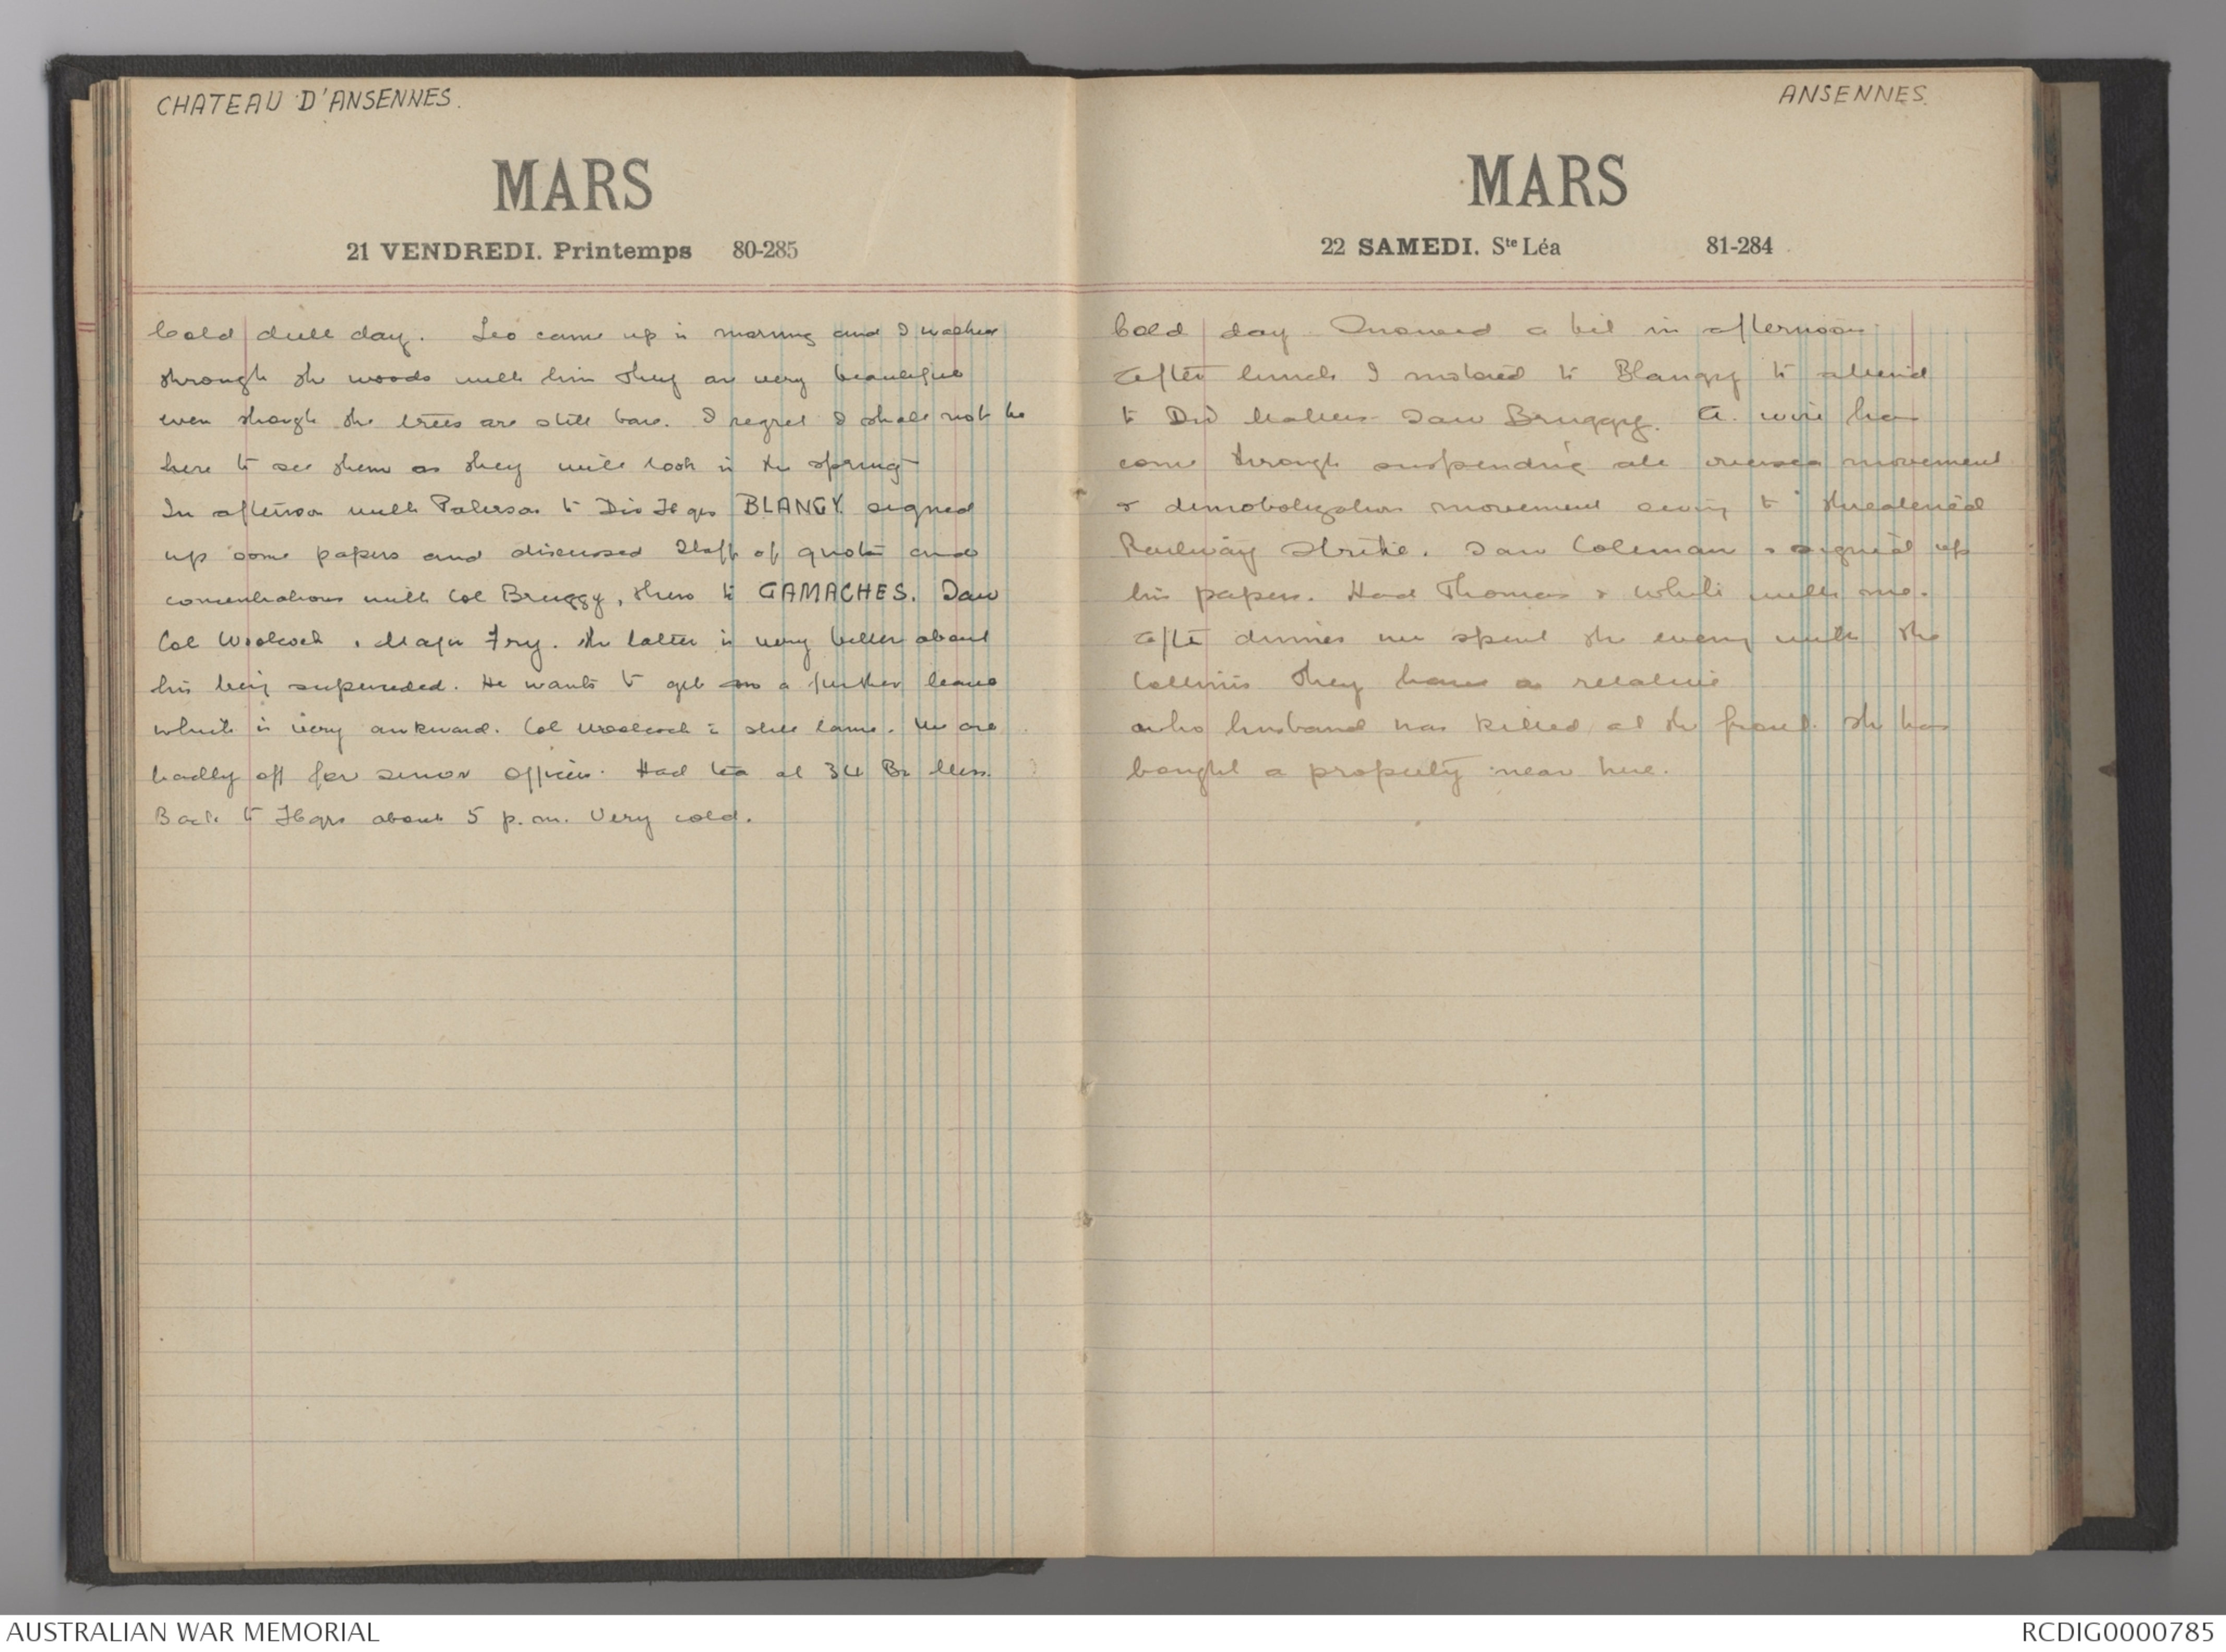 CHATEAU D'ANSENNES.
MARS
21 VENDREDI. Printemps 80-285
Cold dull day. Leo came up in morning and I walked
through the woods with him they are very beautiful
even though the trees are still bare. I regret I shall not be
here to see them as they will look in the spring
In afternoon with Paterson to Div Hqrs BLANGY signed
up some papers and discussed Staff of quota and
concentrations with Col Bruggy, then to GAMACHES. Saw
Col Woolcock & Major Fry. The latter is very bitter about
his being superseded. He wants to get on a further leave
which is very awkward. Col Woolcock is still lame. We are
badly off for senior officers. Had tea at 34 Bn Mess.
Back to Hqrs about 5 p.m. Very cold.
ANSENNES.
MARS
22 SAMEDI. Ste Léa 81-284
Cold day Snowed a bit in afternoon
After lunch I motored to Blangy to attend
to Div matters Saw Bruggy. A. wire has
come through suspending all oversea movement
& demobolization movement owing to threatened
Railway Strike. Saw Coleman & signed up
his papers. Had Thomas & White with me.
After dinner we spent the evening with the
They have a relative
who husband was killed at the front. She has
bought a property near here.
AUSTRALIAN WAR MEMORIAL
RCDIG0000785